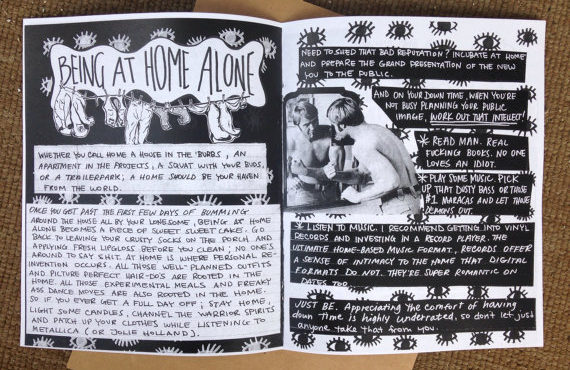 BEING AT HOME ALONE
WHETHER YOU CALL HOME A HOUSE IN THE 'BURBS, AN
APARTMENT IN THE PROJECTS, A SQUAT WITH YOUR BUDS,
OR A TRAILERPARK; A HOME SHOULD BE YOUR HAVEN
FROM THE WORLD.
ONCE YOU GET PAST THE FIRST FEW DAYS OF BUMMING
AROUND THE HOUSE ALL BY YOUR LONESOME, BEING AT HOME
ALONE BECOMES A PIECE OF SWEET SWEET CAKE. GO
BACK TO LEAVING YOUR CRUSTY SOCKS ON THE PORCH AND
APPLYING FRESH LIPGLOSS BEFORE YOU CLEAN; NO ONE'S
AROUND TO SAY SHIT. AT HOME IS WHERE PERSONAL RE-
INVENTION OCCURS. ALL THOSE WELL-PLANNED OUTFITS
AND PICTURE PERFECT HAIR-DOS ARE ROOTED IN THE
HOME. ALL THOSE EXPERIMENTAL MEALS AND FREAKY
ASS DANCE MOVES ARE ALSO ROOTED IN THE HOME.
SO IF YOU EVER GET A FULL DAY OFF; STAY HOME,
LIGHT SOME CANDLES, CHANNEL THE WARRIOR SPIRITS
AND PATCH UP YOUR CLOTHES WHILE LISTENING TO
METALLICA (OR JOLIE HOLLAND).
NEED TO SHED THAT BAD REPUTATION? INCUBATE AT HOME
AND PREPARE THE GRAND PRESENTATION OF THE NEW
YOU TO THE PUBLIC.
AND ON YOUR DOWN TIME, WHEN YOU'RE
NOT BUSY PLANNING YOUR PUBLIC
IMAGE, WORK OUT THAT INTELLECT!
* READ MAN. REAL
FUCKING BOOKS. NO ONE
LOVES AN IDIOT.
* PLAY SOME MUSIC. PICK
UP THAT DUSTY BASS OR THOSE
#1 MARACAS AND LET THOSE
DEMONS OUT.
* LISTEN TO MUSIC. I RECOMMEND GETTING INTO VINYL
RECORDS AND INVESTING IN A RECORD PLAYER. THE
ULTIMATE HOME-BASED MUSIC FORMAT, RECORDS OFFER
A SENSE OF INTIMACY TO THE HOME THAT DIGITAL
FORMATS DO NOT. THEY'RE SUPER ROMANTIC ON
DATES TOO.
JUST BE. Appreciating the comfort of having
down time is highly underrated, so don't let just
anyone take that from you.